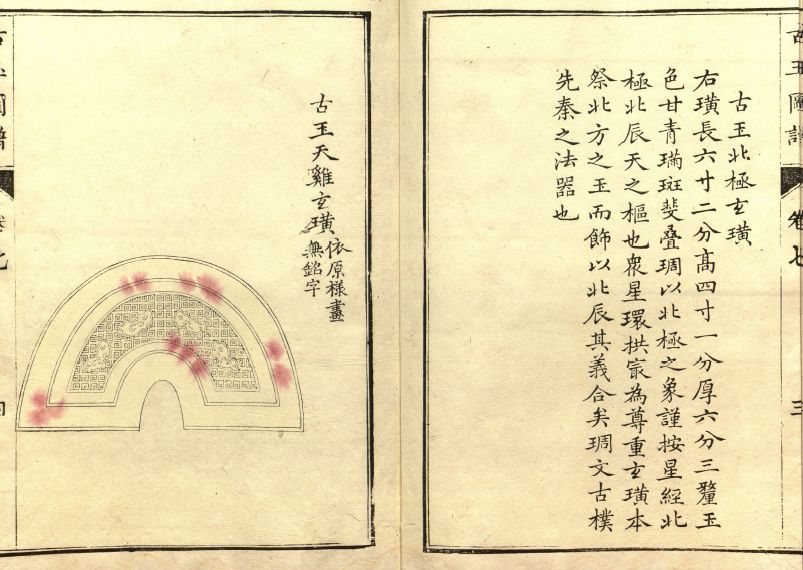 古玉圖譜
卷七
三
古玉北極玄璜
右璜長六寸二分高四寸一分厚六分三釐玉
色甘青瑞斑斐叠琱以北極之象謹按星經北
極北辰天之樞也衆星環拱㝡為尊重玄璜本
祭北方之玉而飾以北辰其義合矣琱文古樸
先秦之法器也
古玉天雞玄璜
依原樣畫
無銘字